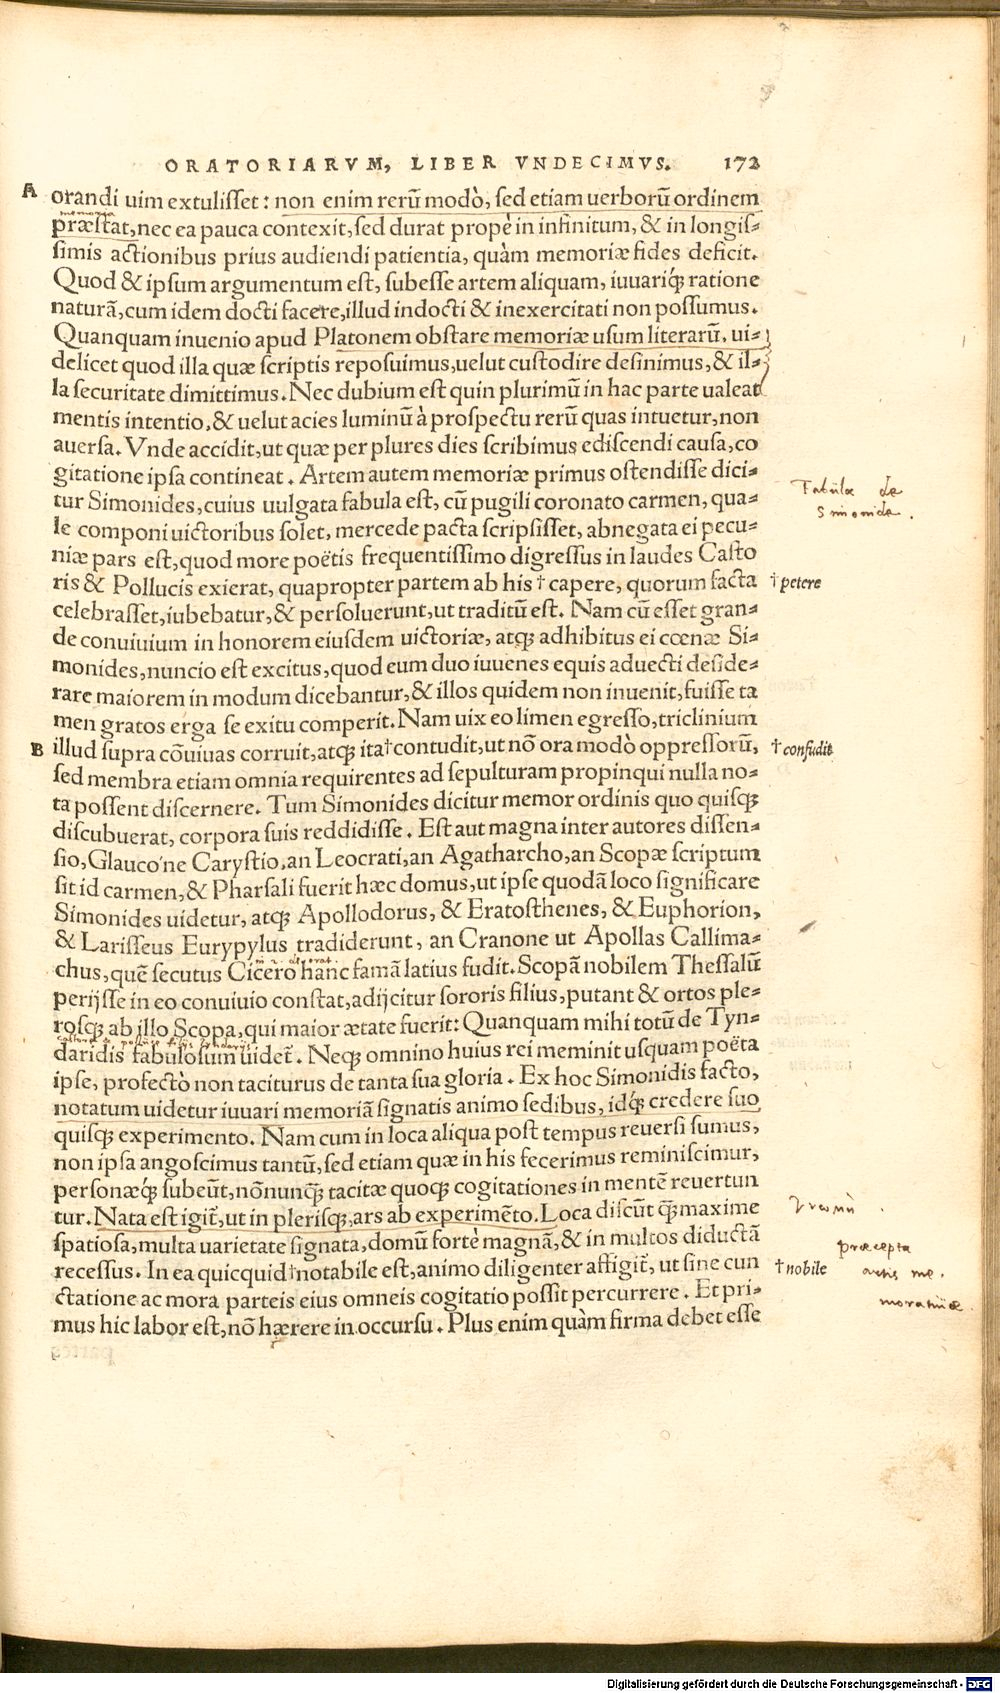 ORATORIARVM, LIBER VNDECIMVS. 172
A orandi uim extulisset: non enim rerũ modò, sed etiam uerborũ ordinem
memoria
præstat, nec ea pauca contexit, sed durat propè in infinitum, & in longis-
simis actionibus prius audiendi patientia, quàm memoriæ fides deficit.
Quod & ipsum argumentum est, subesse artem aliquam, iuuariq́; ratione
naturã, cum idem docti facere, illud indocti & inexercitati non possumus.
Quanquam inuenio apud Platonem obstare memoriæ usum literarũ, ui-
delicet quod illa quæ scriptis reposuimus, uelut custodire desinimus, & il-
la securitate dimittimus. Nec dubium est quin plurimũ in hac parte ualeat
mentis intentio, & uelut acies luminũ à prospectu rerũ quas intuetur, non
auersa. Vnde accidit, ut quæ per plures dies scribimus ediscendi causa, co
gitatione ipsa contineat. Artem autem memoriæ primus ostendisse dici-
Fabula de
tur Simonides, cuius uulgata fabula est, cũ pugili coronato carmen, qua-
Simonide.
le componi uictoribus solet, mercede pacta scripsisset, abnegata ei pecu-
niæ pars est, quod more poëtis frequentissimo digressus in laudes Casto
ris & Pollucis exierat, quapropter partem ab his † capere, quorum facta
† petere
celebrasset, iubebatur, & persoluerunt, ut traditũ est. Nam cũ esset gran-
de conuiuium in honorem eiusdem uictoriæ, atq; adhibitus ei cœnæ Si-
monides, nuncio est excitus, quod eum duo iuuenes equis aduecti deside-
rare maiorem in modum dicebantur, & illos quidem non inuenit, fuisse ta
men gratos erga se exitu comperit. Nam uix eo limen egresso, triclinium
B illud supra cõuiuas corruit, atq; ita † contudit, ut nõ ora modò oppressorũ,
† confudit
sed membra etiam omnia requirentes ad sepulturam propinqui nulla no-
ta possent discernere. Tum Simonides dicitur memor ordinis quo quisq;
discubuerat, corpora suis reddidisse. Est aut magna inter autores dissen-
sio, Glauco'ne Carystio, an Leocrati, an Agatharcho, an Scopæ scriptum
sit id carmen, & Pharsali fuerit hæc domus, ut ipse quodã loco significare
Simonides uidetur, atq; Apollodorus, & Eratosthenes, & Euphorion,
& Larisseus Eurypylus tradiderunt, an Cranone ut Apollas Callima-
chus, quẽ secutus Cicero hanc famã latius fudit. Scopã nobilem Thessalũ
perijsse in eo conuiuio constat, adijcitur sororis filius, putant & ortos ple-
rosq; ab illo Scopa, qui maior ætate fuerit: Quanquam mihi totũ de Tyn-
daridis fabulosum uidet̃. Neq; omnino huius rei meminit usquam poëta
ipse, profectò non taciturus de tanta sua gloria. Ex hoc Simonidis facto,
notatum uidetur iuuari memoriã signatis animo sedibus, idq́; credere suo
quisq; experimento. Nam cum in loca aliqua post tempus reuersi sumus,
non ipsa angoscimus tantũ, sed etiam quæ in his fecerimus reminiscimur,
personæq́; subeũt, nõnunq̃ tacitæ quoq; cogitationes in mentẽ reuertun
tur. Nata est igit̃, ut in plerisq;, ars ab experimẽto. Loca discũt q̃ maxime
spatiosa, multa uarietate signata, domũ fortè magnã, & in multos diductã
præcepta
recessus. In ea quicquid † notabile est, animo diligenter affigit̃, ut sine cun
† nobile
artis me.
ctatione ac mora parteis eius omneis cogitatio possit percurrere. Et pri-
moratiuæ.
mus hic labor est, nõ hærere in occursu. Plus enim quàm firma debet esse
Digitalisierung gefördert durch die Deutsche Forschungsgemeinschaft - DFG